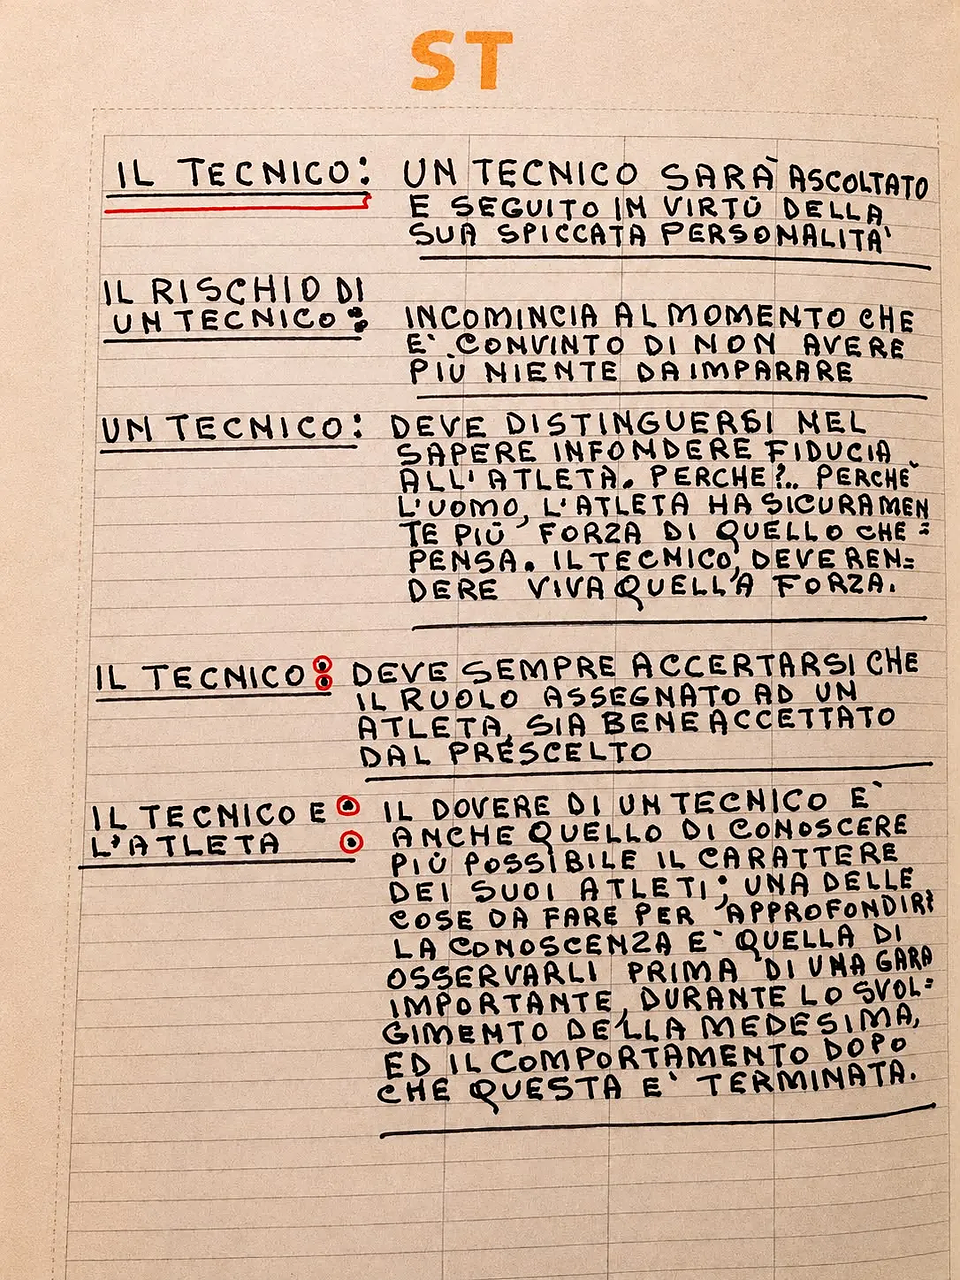 ST
IL TECNICO: UN TECNICO SARÀ ASCOLTATO
E SEGUITO IN VIRTÙ DELLA
SUA SPICCATA PERSONALITA'
IL RISCHIO DI
UN TECNICO: INCOMINCIA AL MOMENTO CHE
E' CONVINTO DI NON AVERE
PIÙ NIENTE DA IMPARARE
UN TECNICO: DEVE DISTINGUERSI NEL
SAPERE INFONDERE FIDUCIA
ALL'ATLETA. PERCHE?.. PERCHÈ
L'UOMO, L'ATLETA HA SICURAMEN
TE PIÙ FORZA DI QUELLO CHE =
PENSA. IL TECNICO, DEVE REN=
DERE VIVA QUELL'A FORZA.
IL TECNICO: DEVE SEMPRE ACCERTARSI CHE
IL RUOLO ASSEGNATO AD UN
ATLETA, SIA BENE ACCETTATO
DAL PRESCELTO
IL TECNICO E : IL DOVERE DI UN TECNICO E'
L'ATLETA ANCHE QUELLO DI CONOSCERE
PIÙ POSSIBILE IL CARATTERE
DEI SUOI ATLETI; UNA DELLE
COSE DA FARE PER APPROFONDIRE
LA CONOSCENZA E' QUELLA DI
OSSERVARLI PRIMA DI UNA GARA
IMPORTANTE, DURANTE LO SVOL=
GIMENTO DELLA MEDESIMA,
ED IL COMPORTAMENTO DOPO
CHE QUESTA E' TERMINATA.